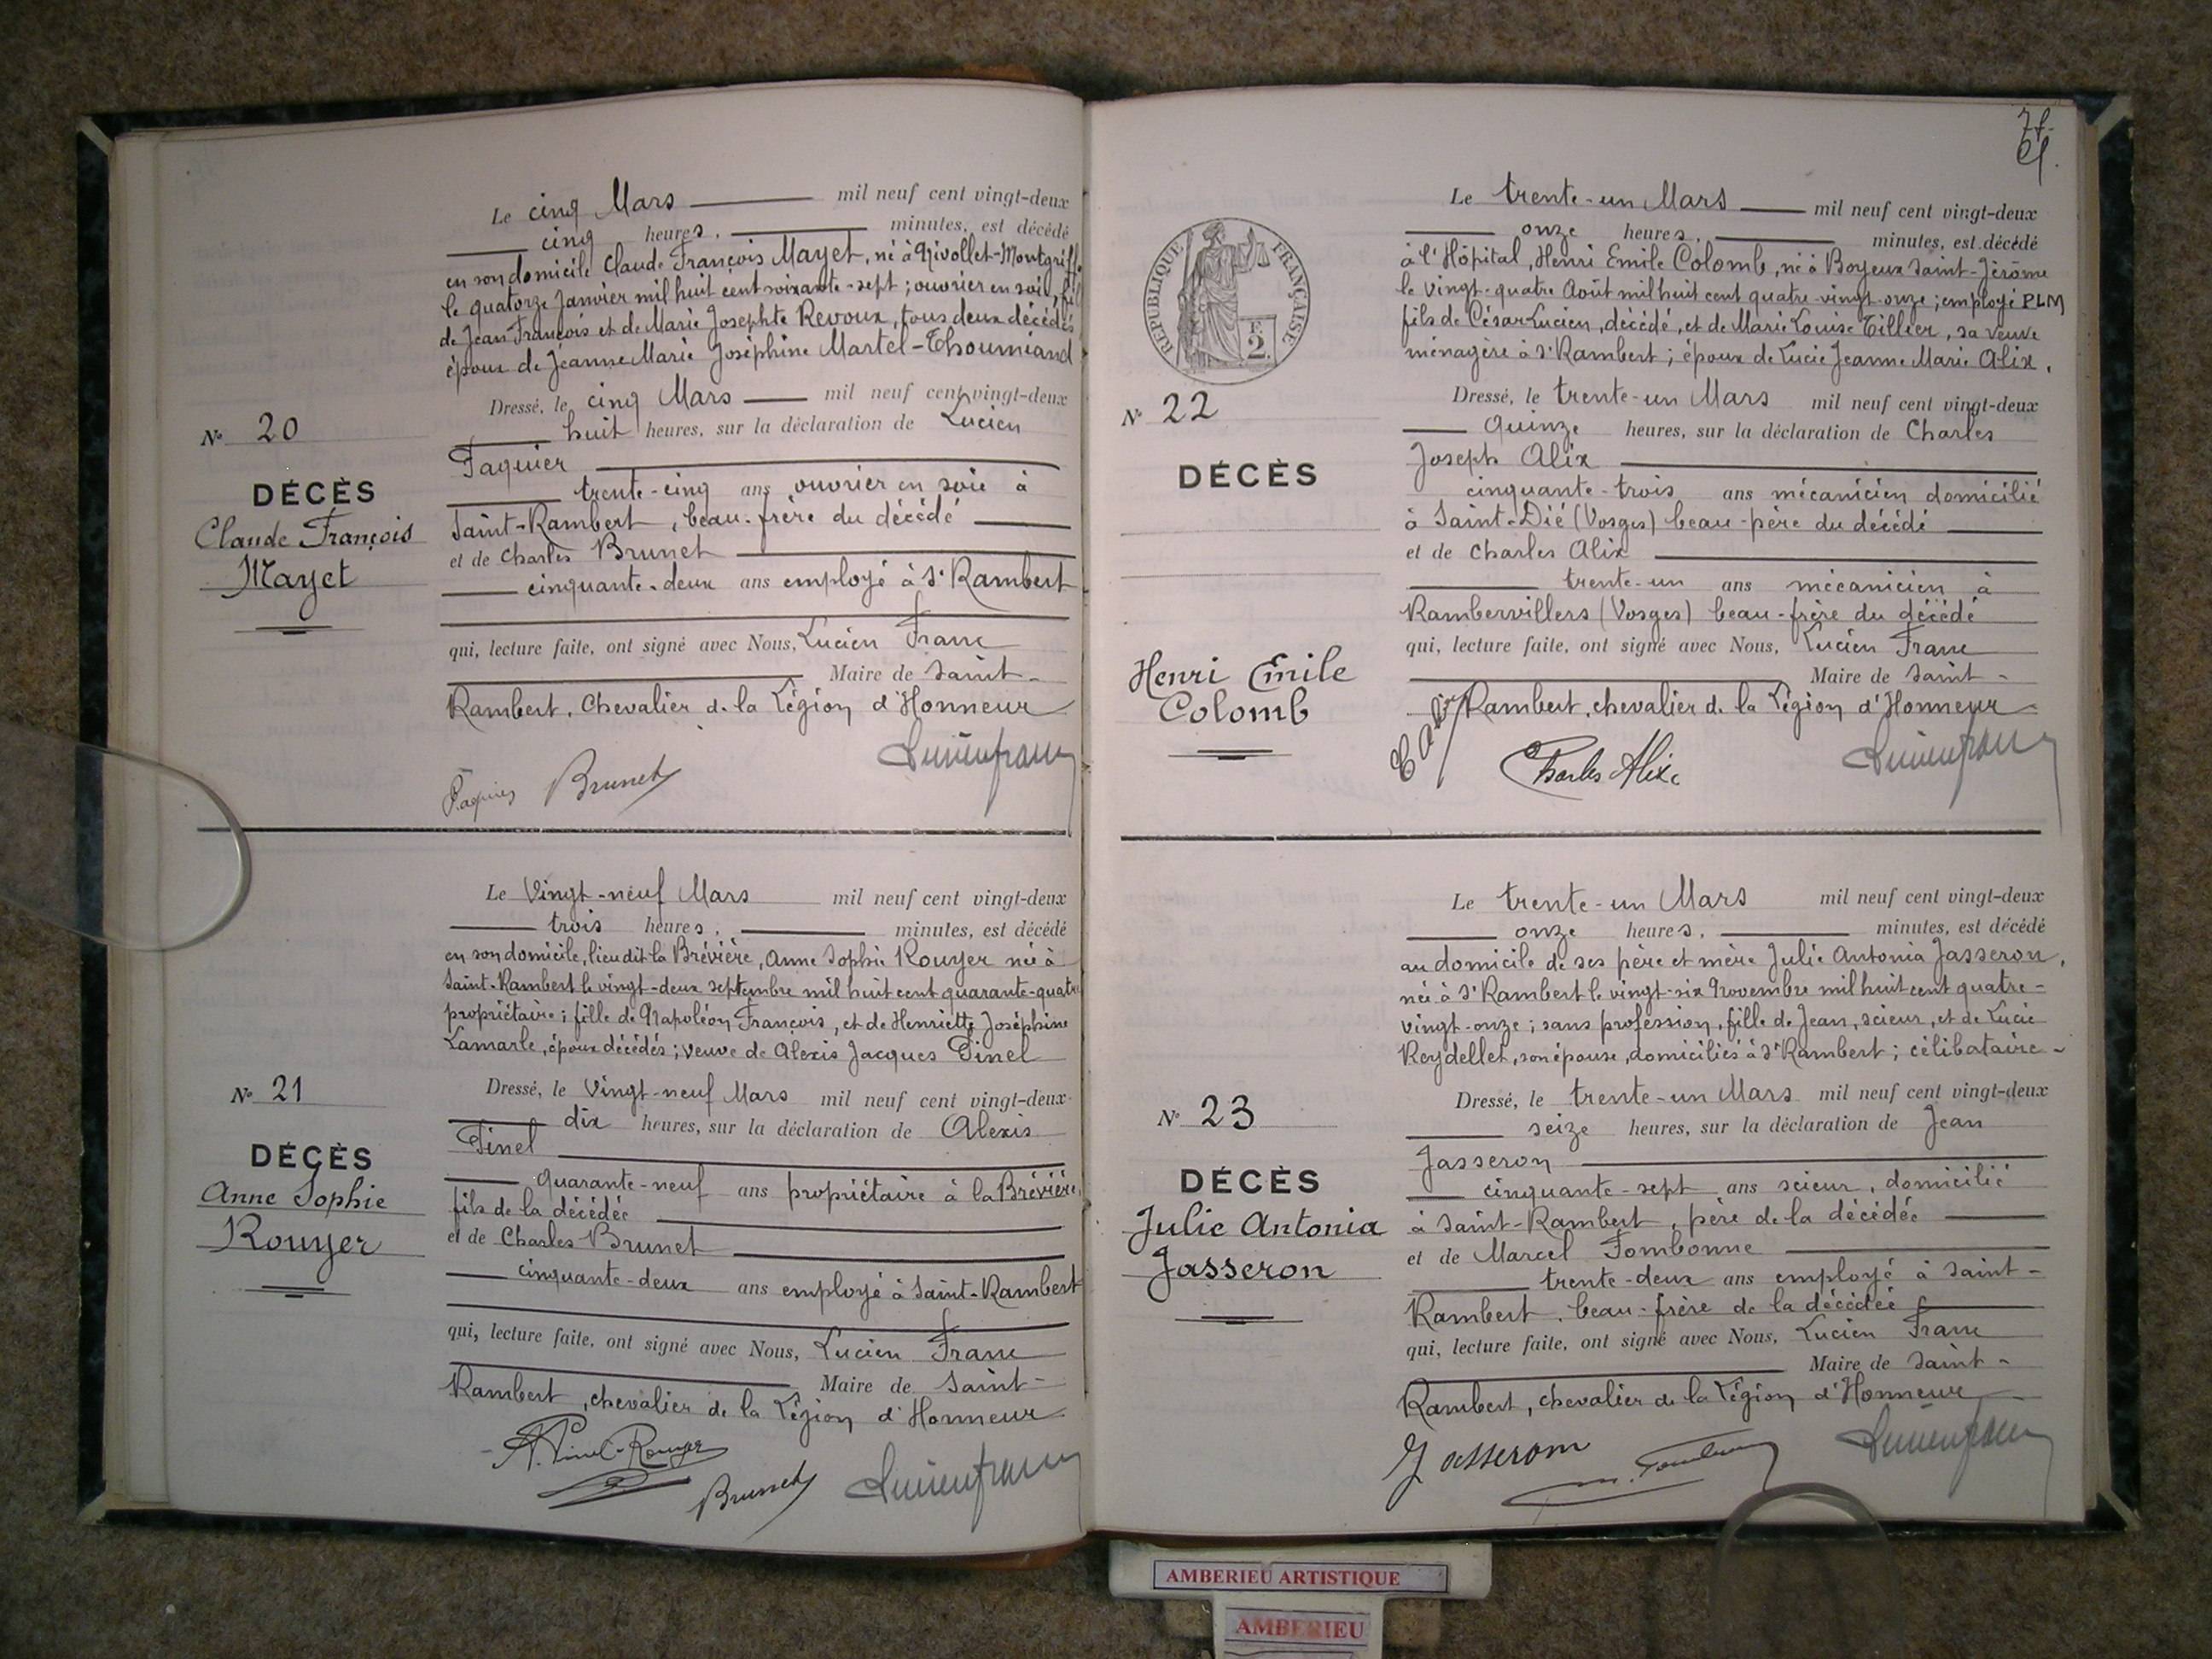 Le cinq Mars mil neuf cent vingt-deux
cinq heures, minutes, est décédé
en son domicile Claude François Mayet, né à Nivollet-Montgriffon
le quatorze Janvier mil huit cent soixante-sept ; ouvrier en soie, fils
de Jean François et de Marie Josephte Revoux, tous deux décédés
époux de Jeanne Marie Joséphine Martel-Thoumiand
Dressé, le cinq Mars mil neuf cent vingt-deux
huit heures, sur la déclaration de Lucien
Faquier
trente-cinq ans ouvrier en soie à
Saint-Rambert, beau-frère du décédé
et de Charles Brunet
cinquante-deux ans employé à St Rambert
qui, lecture faite, ont signé avec Nous, Lucien Franc
Maire de Saint-
Rambert, Chevalier de la Légion d'Honneur
N° 20
DÉCÈS
Claude François
Mayet
Faquier Brunet Lucien Franc
Le Vingt-neuf Mars mil neuf cent vingt-deux
trois heures, minutes, est décédé
en son domicile, lieu dit la Brévière, Anne Sophie Rouyer née à
Saint-Rambert le vingt-deux septembre mil huit cent quarante-quatre
propriétaire ; fille de Napoléon François, et de Henriette Joséphine
Lamarle, époux décédés ; veuve de Alexis Jacques Pinel
Dressé, le Vingt-neuf Mars mil neuf cent vingt-deux
dix heures, sur la déclaration de Alexis
Pinel
quarante-neuf ans propriétaire à la Brévière,
fils de la décédée
et de Charles Brunet
cinquante-deux ans employé à Saint-Rambert
qui, lecture faite, ont signé avec Nous, Lucien Franc
Maire de Saint-
Rambert, chevalier de la Légion d'Honneur
N° 21
DÉCÈS
Anne Sophie
Rouyer
A. Pinel-Rouyer
Brunet Lucien Franc
Le trente-un Mars mil neuf cent vingt-deux
onze heures, minutes, est décédé
à l'Hôpital, Henri Emile Colomb, né à Boyeux Saint-Jérôme
le vingt-quatre Août mil huit cent quatre-vingt-onze ; employé PLM
fils de César Lucien, décédé, et de Marie Louise Tillier, sa veuve
ménagère à St Rambert ; époux de Lucie Jeanne Marie Alix.
Dressé, le trente-un Mars mil neuf cent vingt-deux
Quinze heures, sur la déclaration de Charles
Joseph Alix
cinquante-trois ans mécanicien domicilié
à Saint-Dié (Vosges) beau-père du décédé
et de Charles Alix
trente-un ans mécanicien à
Rambervillers (Vosges) beau-frère du décédé
qui, lecture faite, ont signé avec Nous, Lucien Franc
Maire de Saint-
Rambert, chevalier de la Légion d'Honneur
RÉPUBLIQUE FRANÇAISE
2 F.
N° 22
DÉCÈS
Henri Emile
Colomb
Charles Alix Lucien Franc
Le trente-un Mars mil neuf cent vingt-deux
onze heures, minutes, est décédé
au domicile de ses père et mère Julie Antonia Jasseron,
née à St Rambert le vingt-six Novembre mil huit cent quatre-
vingt-onze ; sans profession, fille de Jean, scieur, et de Lucie
Reydellet, son épouse, domiciliés à St Rambert ; célibataire-
Dressé, le trente-un Mars mil neuf cent vingt-deux
seize heures, sur la déclaration de Jean
Jasseron
cinquante-sept ans scieur, domicilié
à Saint-Rambert, père de la décédée
et de Marcel Fombonne
trente-deux ans employé à Saint-
Rambert, beau-frère de la décédée
qui, lecture faite, ont signé avec Nous, Lucien Franc
Maire de Saint-
Rambert, chevalier de la Légion d'Honneur
N° 23
DÉCÈS
Julie Antonia
Jasseron
Jasseron Lucien Franc
AMBERIEU ARTISTIQUE
AMBERIEU